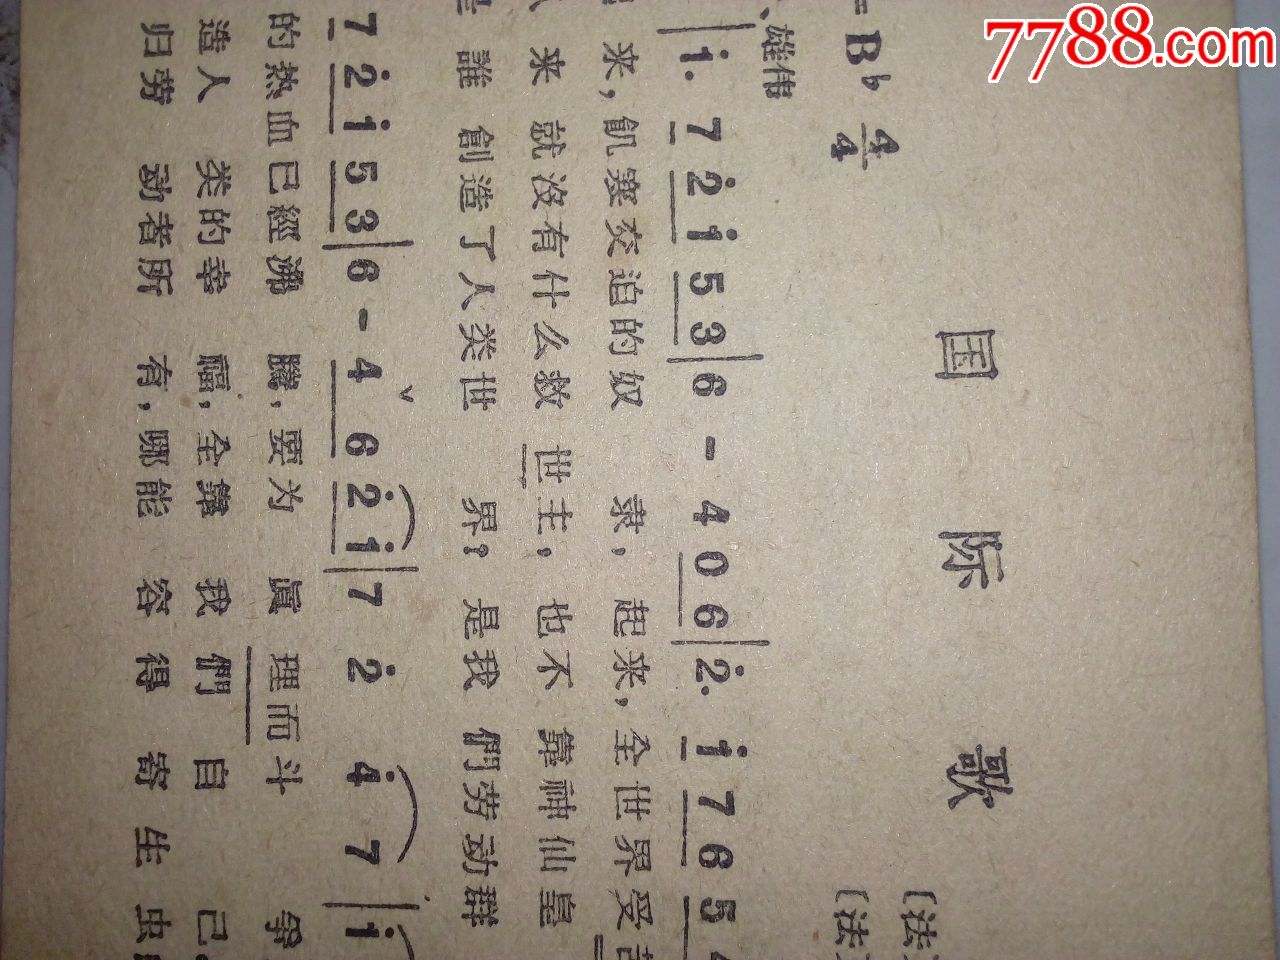 7788.com
国际歌
=B♭ 4/4
〔法
〔法
、雄伟
| i. 7 2̇ i 5 3 | 6 - 4 0 6 | 2̇. i 7 6 5
来，飢寒交迫的奴 隶，起来，全世界受苦
来 就沒有什么救世主，也不 靠神仙皇
誰 創造了人类世 界？是我 們劳动群
7 2̇ i 5 3 | 6 - 4 6 2̇ i | 7 2̇ 4̇ 7 | i
的热血已經沸 腾，要为 眞 理而斗 爭
造人 类的幸 福，全靠 我 們 自 己
归劳 动者所 有，哪能 容 得 寄 生 虫